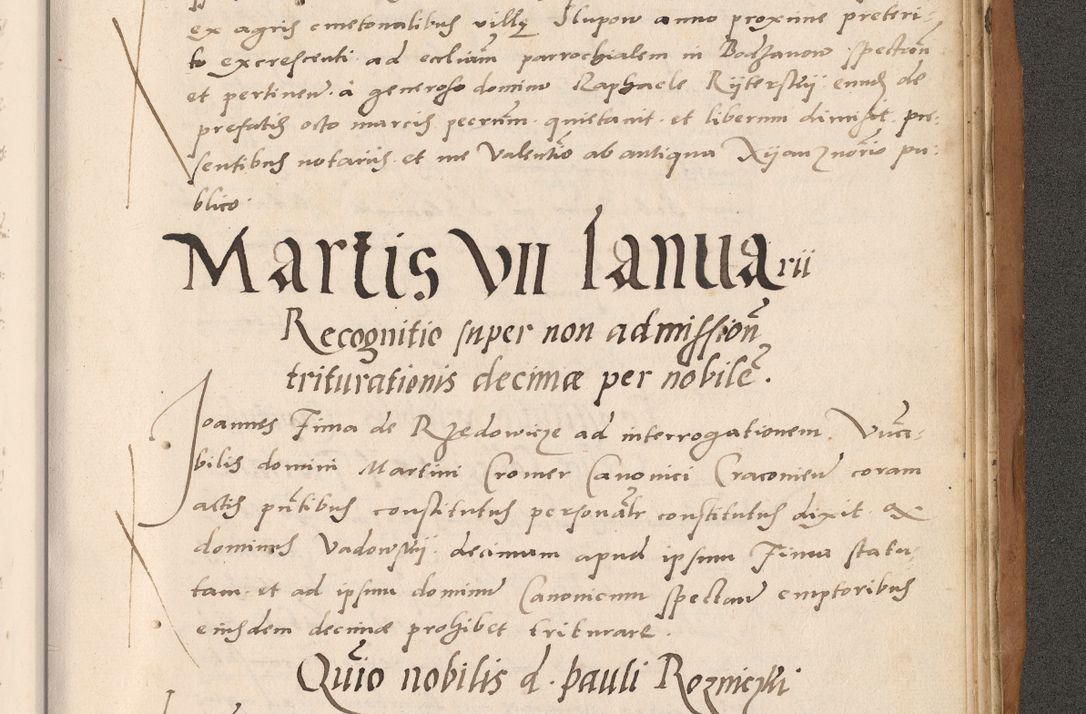 ex agris emetonalibus villę Slupow anno proxime preteri-
to excrescenti ad eccliam parrochialem in Bodzanow spection
et pertinen a generoso domino Raphaele Rijterskij eundem de
prefatis octo marcis pecrum quietavit et liberum dimisit pre-
sentibus notariis et me Valentino ab antiqua Xijanz notario pu-
blico
Martis VII Ianuarii
Recognitio super non admission
triturationis decimæ per nobile.
Joannes Fima de Rzedowicze ad interrogationem Vnera-
bilis domini Martini Cromer Canonici Cracovien coram
actis pntibus constitutus personalr constitutus dixit ex
dominus Vadowskij decimam apud ipsum Fima statu-
tam et ad ipsum dominum Canonicum spectan emptoribus
eiusdem decimæ prohibet triturare.
Quio nobilis d. pauli Roznicki